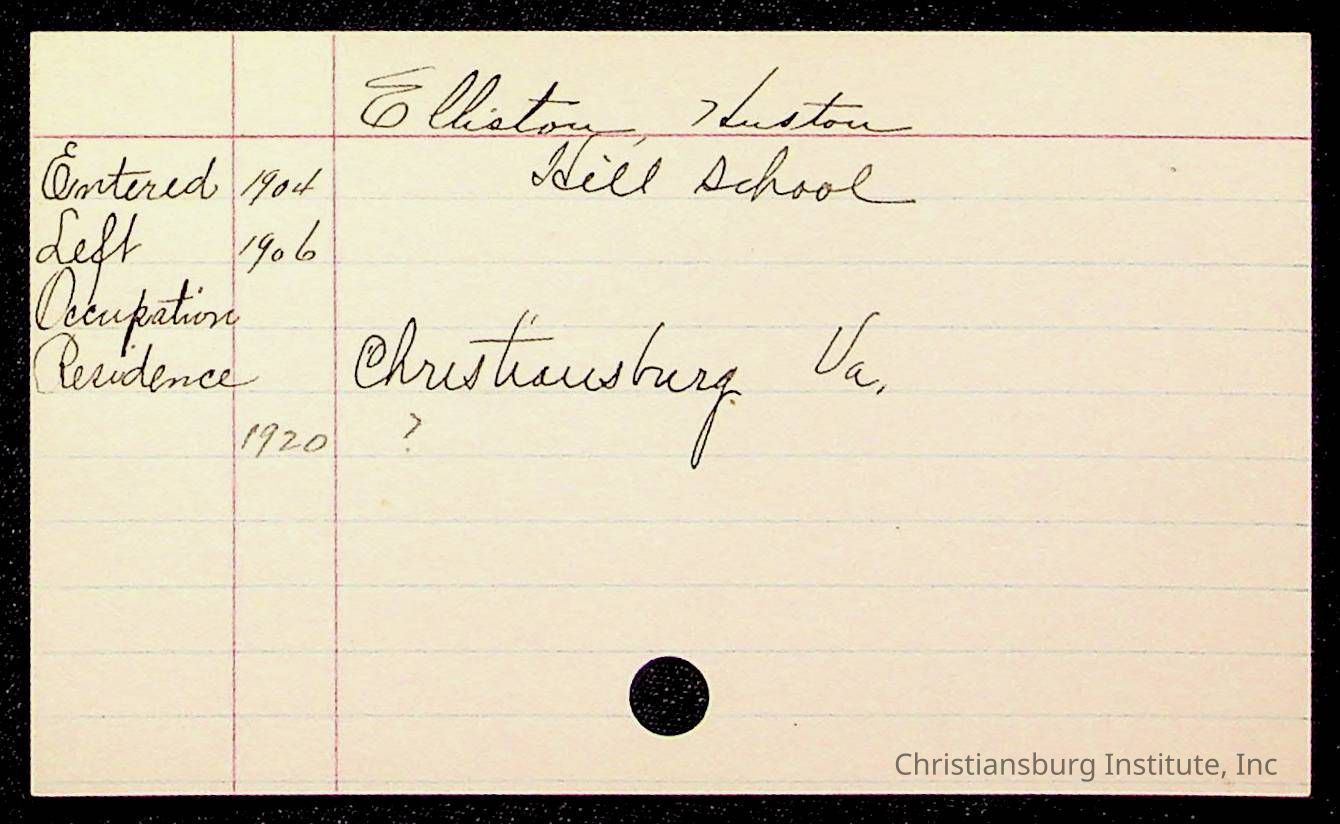 Elliston, Huston
Entered 1904 Hill School
Left 1906
Occupation
Residence Christiansburg Va.
1920 ?
Christiansburg Institute, Inc